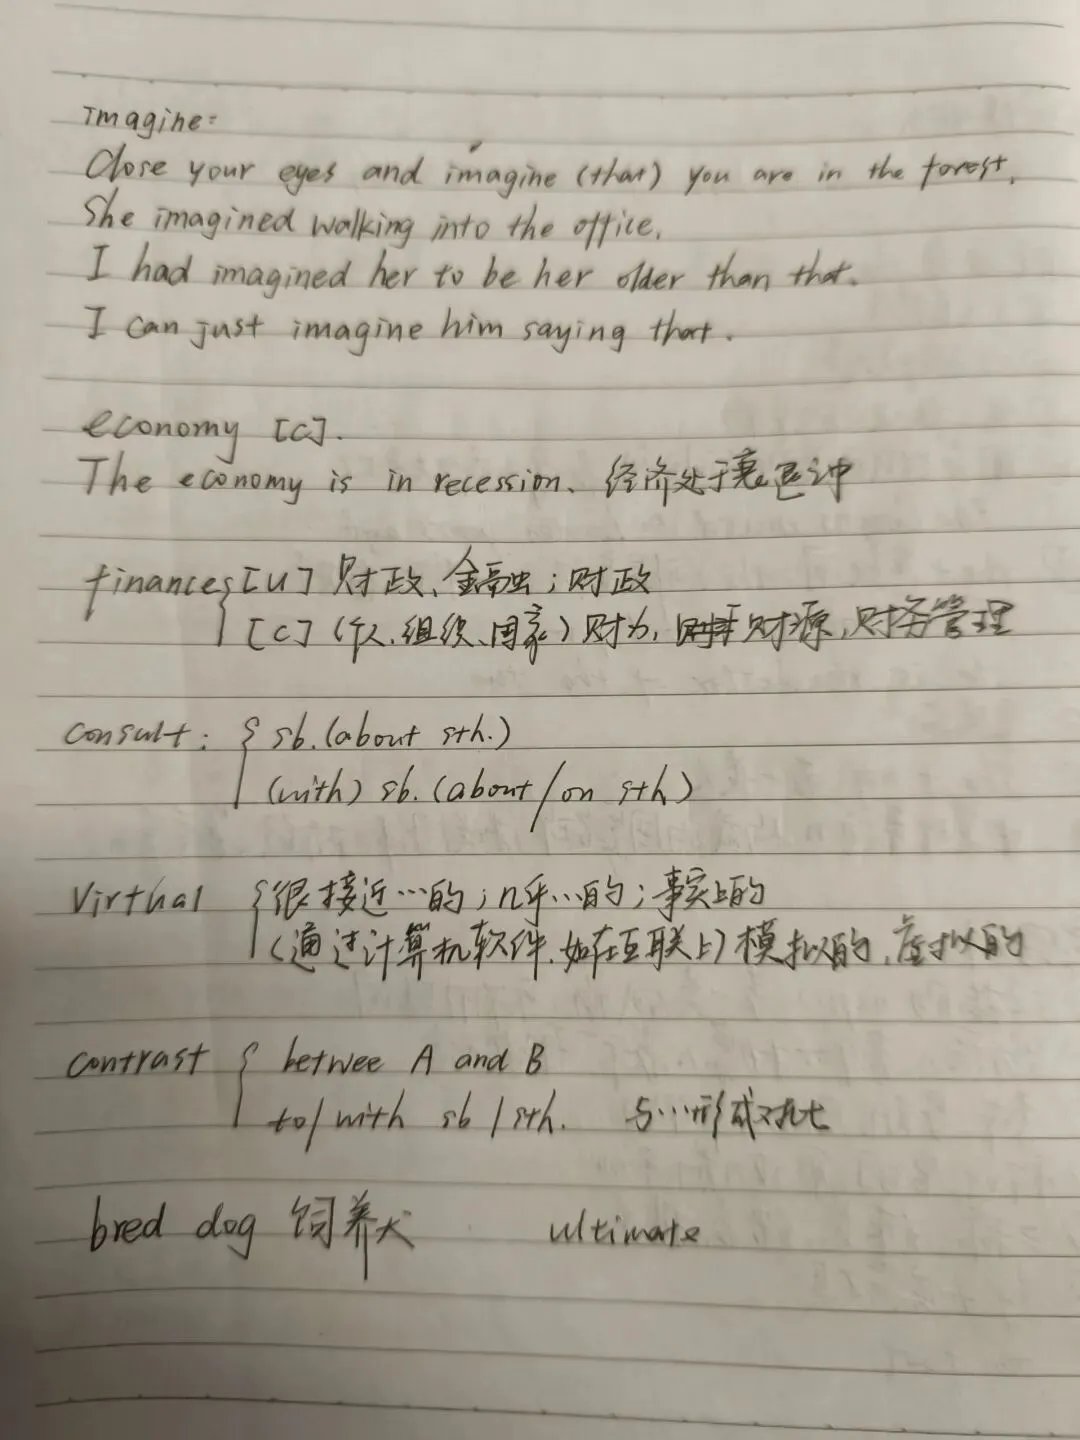 imagine:
Close your eyes and imagine (that) you are in the forest.
She imagined walking into the office.
I had imagined her to be her older than that.
I can just imagine him saying that.
economy [C].
The economy is in recession. 经济处于衰退中
finances [U] 财政、金融；财政
[C] (个人、组织、国家) 财力, 财源, 财务管理
consult: { sb. (about sth.)
(with) sb. (about/on sth)
Virthal { 很接近…的；几乎…的；事实上的
(通过计算机软件, 如在互联上) 模拟的, 虚拟的
contrast { betwee A and B
to/with sb/sth. 与…形成对比
bred dog 饲养犬 ultimate